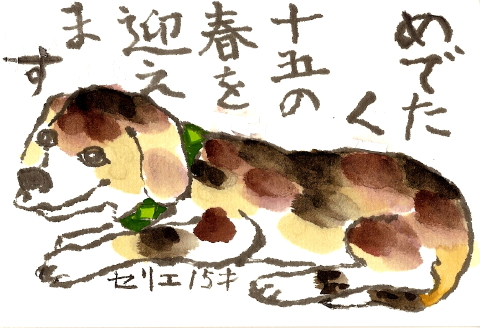 めでた
く
十五の
春を
迎え
ま
す
セリエ 15才